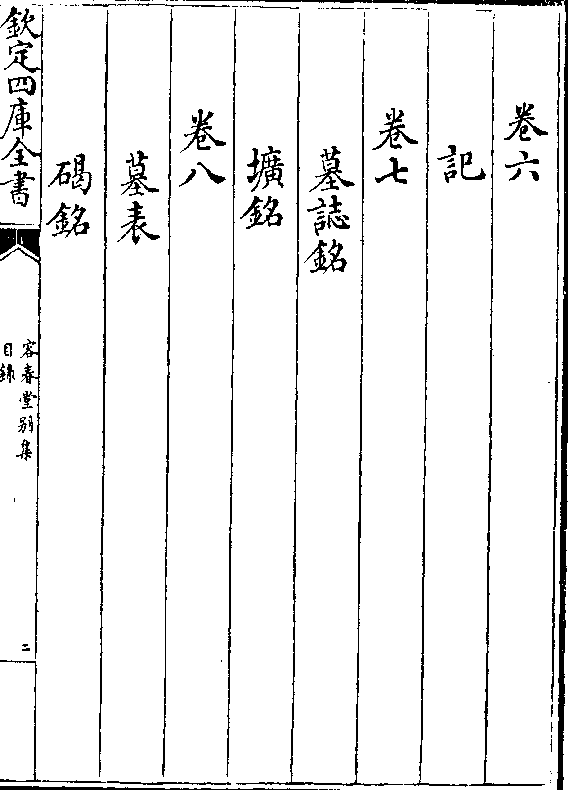 卷六
記
卷七
墓誌銘
壙銘
卷八
墓表
碣銘
欽定四庫全書
容春堂別集
目録
二